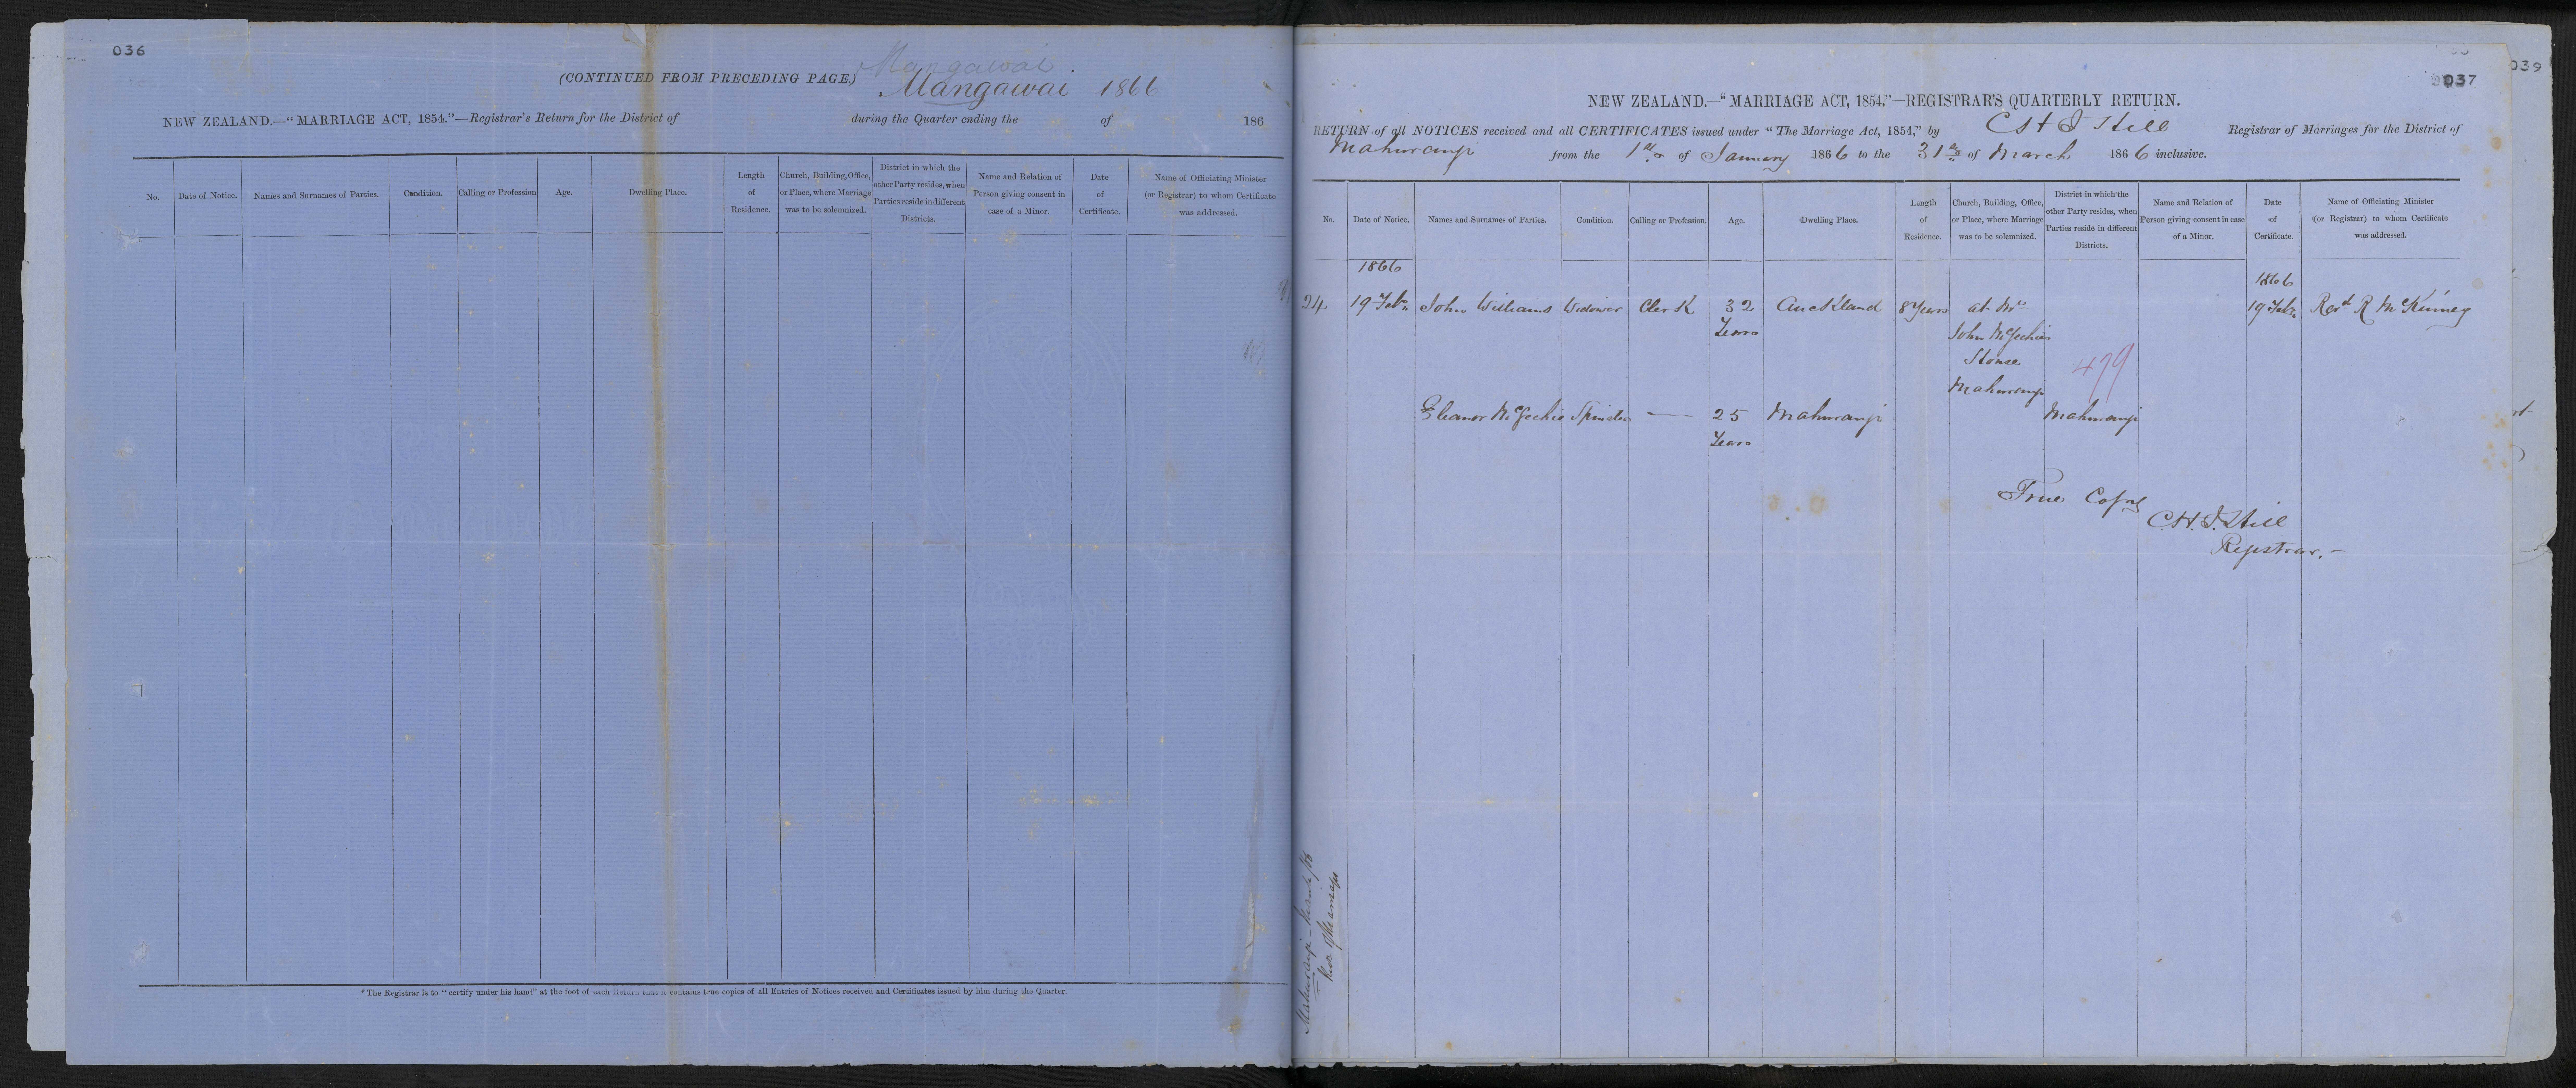 036
(CONTINUED FROM PRECEDING PAGE.)
Mangawai
Mangawai 1866
NEW ZEALAND.—"MARRIAGE ACT, 1854."—Registrar's Return for the District of during the Quarter ending the of 186
No.
Date of Notice.
Names and Surnames of Parties.
Condition.
Calling or Profession
Age.
Dwelling Place.
Length
of
Residence.
Church, Building, Office,
or Place, where Marriage
was to be solemnized.
District in which the
other Party resides, when
Parties reside in different
Districts.
Name and Relation of
Person giving consent in
case of a Minor.
Date
of
Certificate.
Name of Officiating Minister
(or Registrar) to whom Certificate
was addressed.
*The Registrar is to "certify under his hand" at the foot of each Return that it contains true copies of all Entries of Notices received and Certificates issued by him during the Quarter.
037
039
NEW ZEALAND.—"MARRIAGE ACT, 1854."—REGISTRAR'S QUARTERLY RETURN.
RETURN of all NOTICES received and all CERTIFICATES issued under "The Marriage Act, 1854," by C H J Hill Registrar of Marriages for the District of
Mahurangi from the 1st of January 1866 to the 31st of March 1866 inclusive.
No.
Date of Notice.
Names and Surnames of Parties.
Condition.
Calling or Profession.
Age.
Dwelling Place.
Length
of
Residence.
Church, Building, Office,
or Place, where Marriage
was to be solemnized.
District in which the
other Party resides, when
Parties reside in different
Districts.
Name and Relation of
Person giving consent in case
of a Minor.
Date
of
Certificate.
Name of Officiating Minister
(or Registrar) to whom Certificate
was addressed.
1866
1866
24 19 Feby John Williams Widower Clerk 32 Auckland 8 Years at Mr 19 Feby Revd R McKinney
Years John McGechie's
House
Mahurangi
479
Eleanor McGechie Spinster — 25 Mahurangi Mahurangi
Years
True Copy
C.H.J. Hill
Registrar.—
Mahurangi